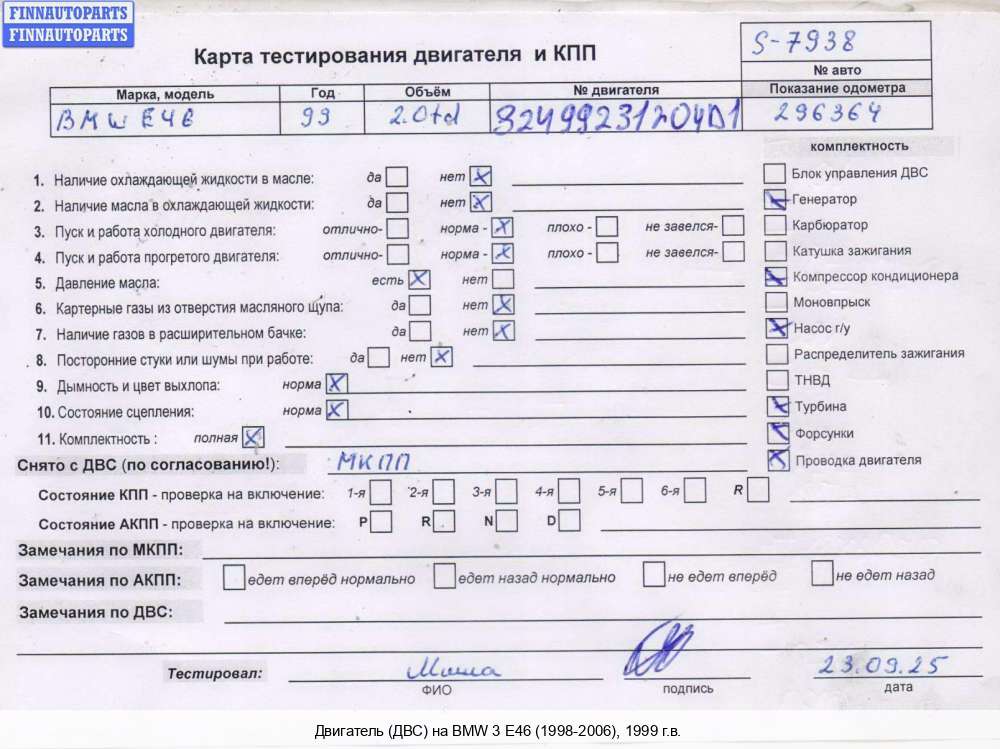 FINNAUTOPARTS
FINNAUTOPARTS
Карта тестирования двигателя и КПП
S-7938
№ авто
Марка, модель Год Объём № двигателя Показание одометра
BMW E46 99 2.0td 32499231204D1 296364
комплектность
1. Наличие охлаждающей жидкости в масле: да нет X
Блок управления ДВС
2. Наличие масла в охлаждающей жидкости: да нет X
Генератор
3. Пуск и работа холодного двигателя: отлично- норма - X плохо - не завелся-
Карбюратор
4. Пуск и работа прогретого двигателя: отлично- норма - X плохо - не завелся-
Катушка зажигания
5. Давление масла: есть X нет
Компрессор кондиционера
6. Картерные газы из отверстия масляного щупа: да нет X
Моновпрыск
7. Наличие газов в расширительном бачке: да нет X
Насос г/у
8. Посторонние стуки или шумы при работе: да нет X
Распределитель зажигания
9. Дымность и цвет выхлопа: норма X
ТНВД
10. Состояние сцепления: норма X
Турбина
11. Комплектность : полная X
Форсунки
Снято с ДВС (по согласованию!): МКПП
Проводка двигателя
Состояние КПП - проверка на включение: 1-я 2-я 3-я 4-я 5-я 6-я R
Состояние АКПП - проверка на включение: P R N D
Замечания по МКПП:
Замечания по АКПП: едет вперёд нормально едет назад нормально не едет вперёд не едет назад
Замечания по ДВС:
Тестировал: Миша 23.09.25
ФИО подпись дата
Двигатель (ДВС) на BMW 3 E46 (1998-2006), 1999 г.в.